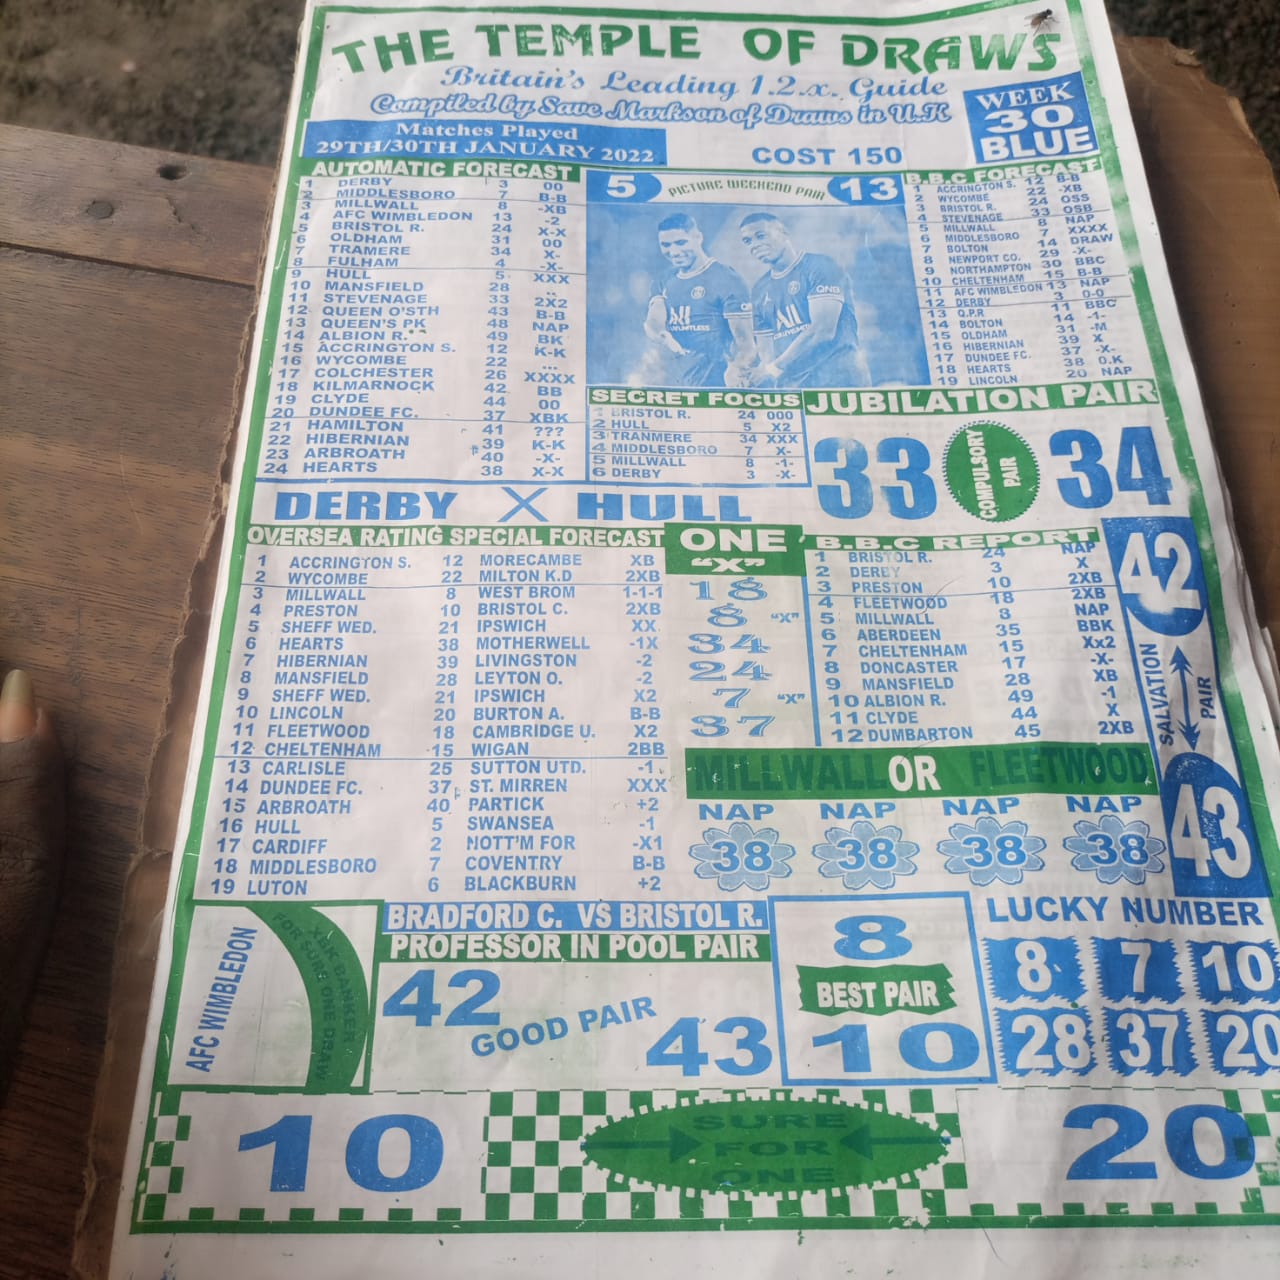 THE TEMPLE OF DRAWS
Britain's Leading 1.2.x. Guide
Compiled by Save Markson of Draws in U.K
WEEK
30
BLUE
Matches Played
29TH/30TH JANUARY 2022
COST 150
AUTOMATIC FORECAST
1 DERBY 3 00
2 MIDDLESBORO 7 B-B
3 MILLWALL 8 -XB
4 AFC WIMBLEDON 13 -2
5 BRISTOL R. 24 X-X
6 OLDHAM 31 00
7 TRAMERE 34 X-
8 FULHAM 4 -X-
9 HULL 5 XXX
10 MANSFIELD 28 ...
11 STEVENAGE 33 2X2
12 QUEEN O'STH 43 B-B
13 QUEEN'S PK 48 NAP
14 ALBION R. 49 BK
15 ACCRINGTON S. 12 K-K
16 WYCOMBE 22 ...
17 COLCHESTER 26 XXXX
18 KILMARNOCK 42 BB
19 CLYDE 44 00
20 DUNDEE FC. 37 XBK
21 HAMILTON 41 ???
22 HIBERNIAN 39 K-K
23 ARBROATH 40 -X-
24 HEARTS 38 X-X
5 PICTURE WEEKEND PAIR 13
QNB
QNB
B.B.C FORECAST
1 ACCRINGTON S. 12 B-B
2 WYCOMBE 22 -XB
3 BRISTOL R. 24 OSS
4 STEVENAGE 33 OSB
5 MILLWALL 8 NAP
6 MIDDLESBORO 7 XXXX
7 BOLTON 14 DRAW
8 NEWPORT CO. 29 -X-
9 NORTHAMPTON 30 BBC
10 CHELTENHAM 15 B-B
11 AFC WIMBLEDON 13 NAP
12 DERBY 3 0-0
13 Q.P.R 11 BBC
14 BOLTON 14 -1-
15 OLDHAM 31 -M
16 HIBERNIAN 39 X
17 DUNDEE FC. 37 -X-
18 HEARTS 38 0.K
19 LINCOLN 20 NAP
SECRET FOCUS
1 BRISTOL R. 24 000
2 HULL 5 X2
3 TRANMERE 34 XXX
4 MIDDLESBORO 7 X-
5 MILLWALL 8 -1-
6 DERBY 3 -X-
JUBILATION PAIR
33 COMPULSORY PAIR 34
DERBY X HULL
OVERSEA RATING SPECIAL FORECAST
1 ACCRINGTON S. 12 MORECAMBE XB
2 WYCOMBE 22 MILTON K.D 2XB
3 MILLWALL 8 WEST BROM 1-1-1
4 PRESTON 10 BRISTOL C. 2XB
5 SHEFF WED. 21 IPSWICH XX
6 HEARTS 38 MOTHERWELL -1X
7 HIBERNIAN 39 LIVINGSTON -2
8 MANSFIELD 28 LEYTON O. -2
9 SHEFF WED. 21 IPSWICH X2
10 LINCOLN 20 BURTON A. B-B
11 FLEETWOOD 18 CAMBRIDGE U. X2
12 CHELTENHAM 15 WIGAN 2BB
13 CARLISLE 25 SUTTON UTD. -1
14 DUNDEE FC. 37 ST. MIRREN XXX
15 ARBROATH 40 PARTICK +2
16 HULL 5 SWANSEA -1
17 CARDIFF 2 NOTT'M FOR -X1
18 MIDDLESBORO 7 COVENTRY B-B
19 LUTON 6 BLACKBURN +2
ONE
"X"
18
8 "X"
34
24
7 "X"
37
B.B.C REPORT
1 BRISTOL R. 24 NAP
2 DERBY 3 X
3 PRESTON 10 2XB
4 FLEETWOOD 18 2XB
5 MILLWALL 8 NAP
6 ABERDEEN 35 BBK
7 CHELTENHAM 15 Xx2
8 DONCASTER 17 -X-
9 MANSFIELD 28 XB
10 ALBION R. 49 -1
11 CLYDE 44 X
12 DUMBARTON 45 2XB
42
SALVATION PAIR
43
MILLWALL OR FLEETWOOD
NAP NAP NAP NAP
38 38 38 38
AFC WIMBLEDON
XBK BANKER
FOR SURE ONE DRAW
BRADFORD C. VS BRISTOL R.
PROFESSOR IN POOL PAIR
42
GOOD PAIR
43
8
BEST PAIR
10
LUCKY NUMBER
8 7 10
28 37 20
10
SURE
FOR
ONE
20